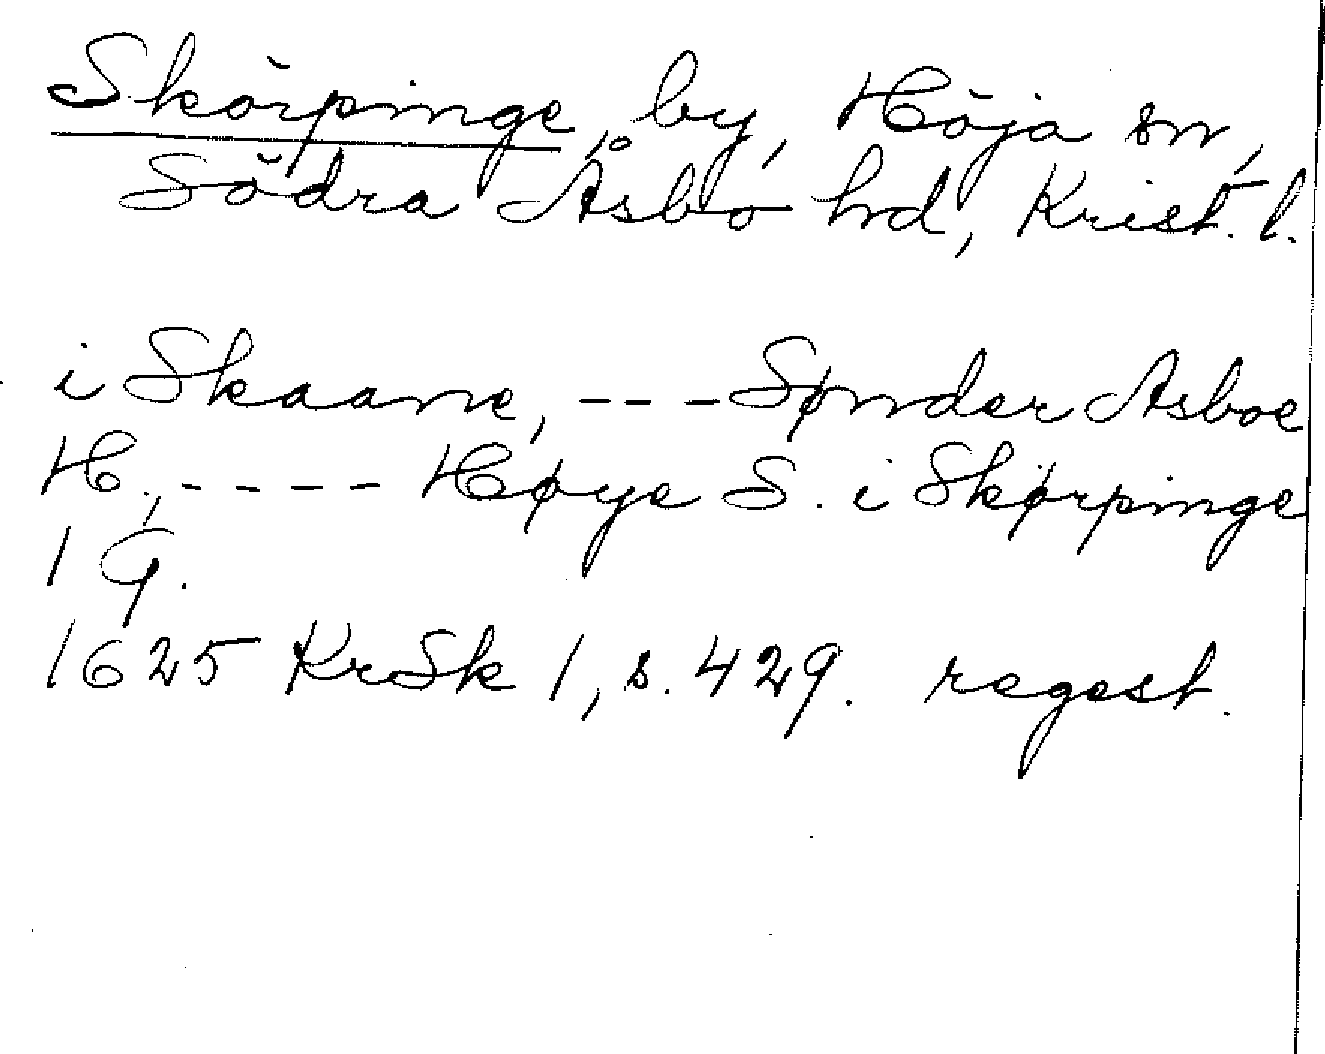 Skörpinge, by, Höja sn,
Södra Åsbo hd, Krist. l.
i Skaane, --- Sønder Asboe
H., ---- Høye S. i Skørpinge
1 G.
1625 KrSk 1, s. 429. regest.